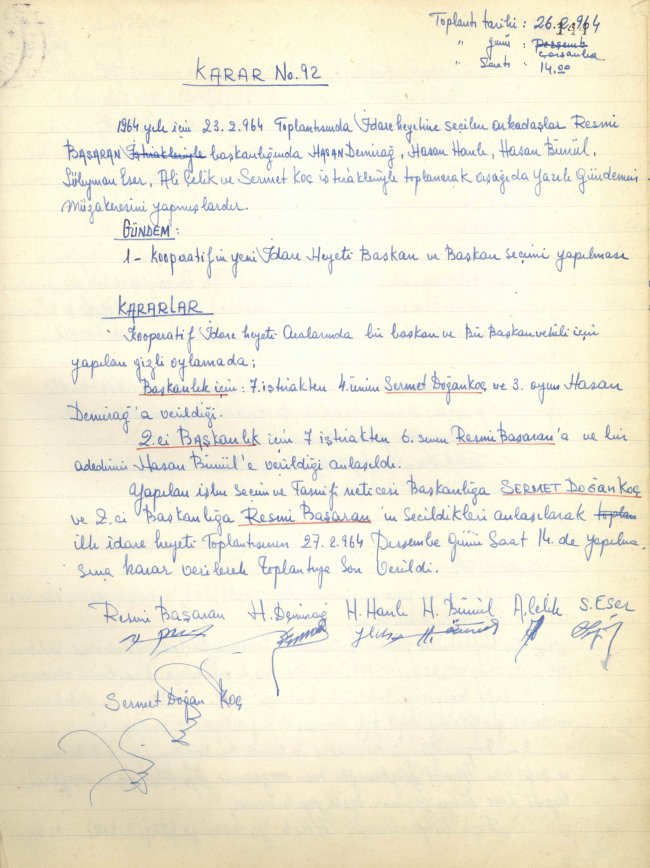 Toplantı tarihi : 26.2.964
" günü : Perşemb
Çarşanba
" Saati : 14.00
KARAR No. 92
1964 yılı için 23.2.964 Toplantısında İdare heyetine seçilen arkadaşlar Resmi
BAŞARAN iştirakleriyle başkanlığında HASAN Demirağ, Hasan Hanlı, Hasan Bümül,
Süleyman Eser, Ali Çelik ve Sermet Koç iştirakleriyle toplanarak aşağıda Yazılı Gündemin
müzakeresini yapmışlardır.
GÜNDEM :
1 - Kooperatifin yeni İdare Heyeti Başkan ve Başkan seçimi yapılması
KARARLAR
Kooperatif İdare heyeti Aralarında bir başkan ve Bir Başkan vekili için
yapılan gizli oylamada ;
Başkanlık için : 7. iştirakten 4.ünün Sermet Doğan Koç ve 3. oyun Hasan
Demirağ'a verildiği.
2.ci BAŞKANLIK için 7 iştirakten 6.sının Resmi Başaran'a ve bir
adedinin Hasan Bümül'e verildiği anlaşıldı.
Yapılan işbu Seçim ve Tasnifi neticesi Başkanlığa SERMET DOĞAN KOÇ
ve 2.ci Başkanlığa Resmi Başaran'ın Seçildikleri anlaşılarak toplan
ilk idare heyeti Toplantısının 27.2.964 Perşembe Günü Saat 14.de yapılma
sına karar verilerek Toplantıya Son Verildi.
Resmi Başaran H. Demirağ H. Hanlı H. Bümül A. Çelik S. ESER
Sermet Doğan Koç